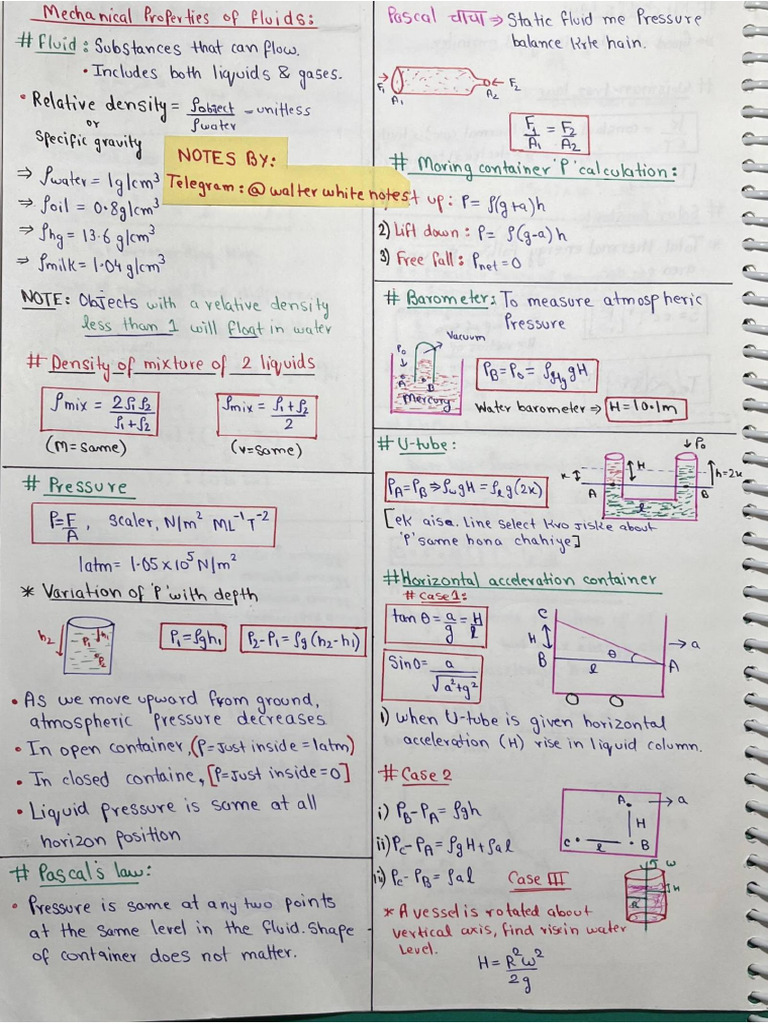 Mechanical Properties of fluids:
# Fluid: Substances that can flow.
• Includes both liquids & gases.
• Relative density = ρobject / ρwater - unitless
or
Specific gravity
NOTES BY:
Telegram: @ walter white notes
⇒ ρwater = 1g/cm³
⇒ ρoil = 0.8g/cm³
⇒ ρhg = 13.6 g/cm³
⇒ ρmilk = 1.04 g/cm³
NOTE: Objects with a relative density
less than 1 will float in water
# Density of mixture of 2 liquids
ρmix = 2ρ1ρ2 / ρ1+ρ2
ρmix = ρ1+ρ2 / 2
(M=same)
(v=same)
# Pressure
P=F/A, scaler, N/m² ML⁻¹T⁻²
1atm = 1.05 x 10⁵ N/m²
* Variation of 'P' with depth
h2
P1
h1
P2
P1=ρgh1
P2-P1=ρg(h2-h1)
• As we move upward from ground,
atmospheric pressure decreases
• In open container, (P=just inside=1atm)
• In closed containe, [P=just inside=0]
• Liquid pressure is same at all
horizon position
# Pascal's law:
• Pressure is same at any two points
at the same level in the fluid. Shape
of container does not matter.
Pascal चाचा ⇒ Static fluid me Pressure
balance krte hain.
F1
A1
A2
F2
F1/A1 = F2/A2
# Moving container 'P' calculation:
t up: P= ρ(g+a)h
2) Lift down: P= ρ(g-a)h
3) Free fall: Pnet=0
# Barometer: To measure atmospheric
Pressure
Vacuum
P0
A
B
Mercury
PB=P0=ρHg gH
Water barometer ⇒ H=10.1m
# U-tube:
P0
PA=PB ⇒ ρwgH=ρℓg(2x)
x
H
h=2x
A
B
ℓ
[ek aisa Line select kro jiske about
'P' same hona chahiye]
# Horizontal acceleration container
# case1:
tan θ = a/g = H/ℓ
Sinθ= a / √a²+g²
C
H
B
θ
ℓ
A
a
i) when U-tube is given horizontal
acceleration (H) rise in liquid column.
# Case 2
i) PB-PA=ρgh
ii) Pc-PA=ρgH+ρaℓ
iii) Pc-PB=ρaℓ
A
a
H
C
ℓ
B
Case III
ω
H
R
* A vessel is rotated about
vertical axis, find rise in water
level.
H = R²ω² / 2g